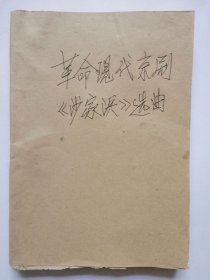 革命现代京剧
《沙家浜》选曲